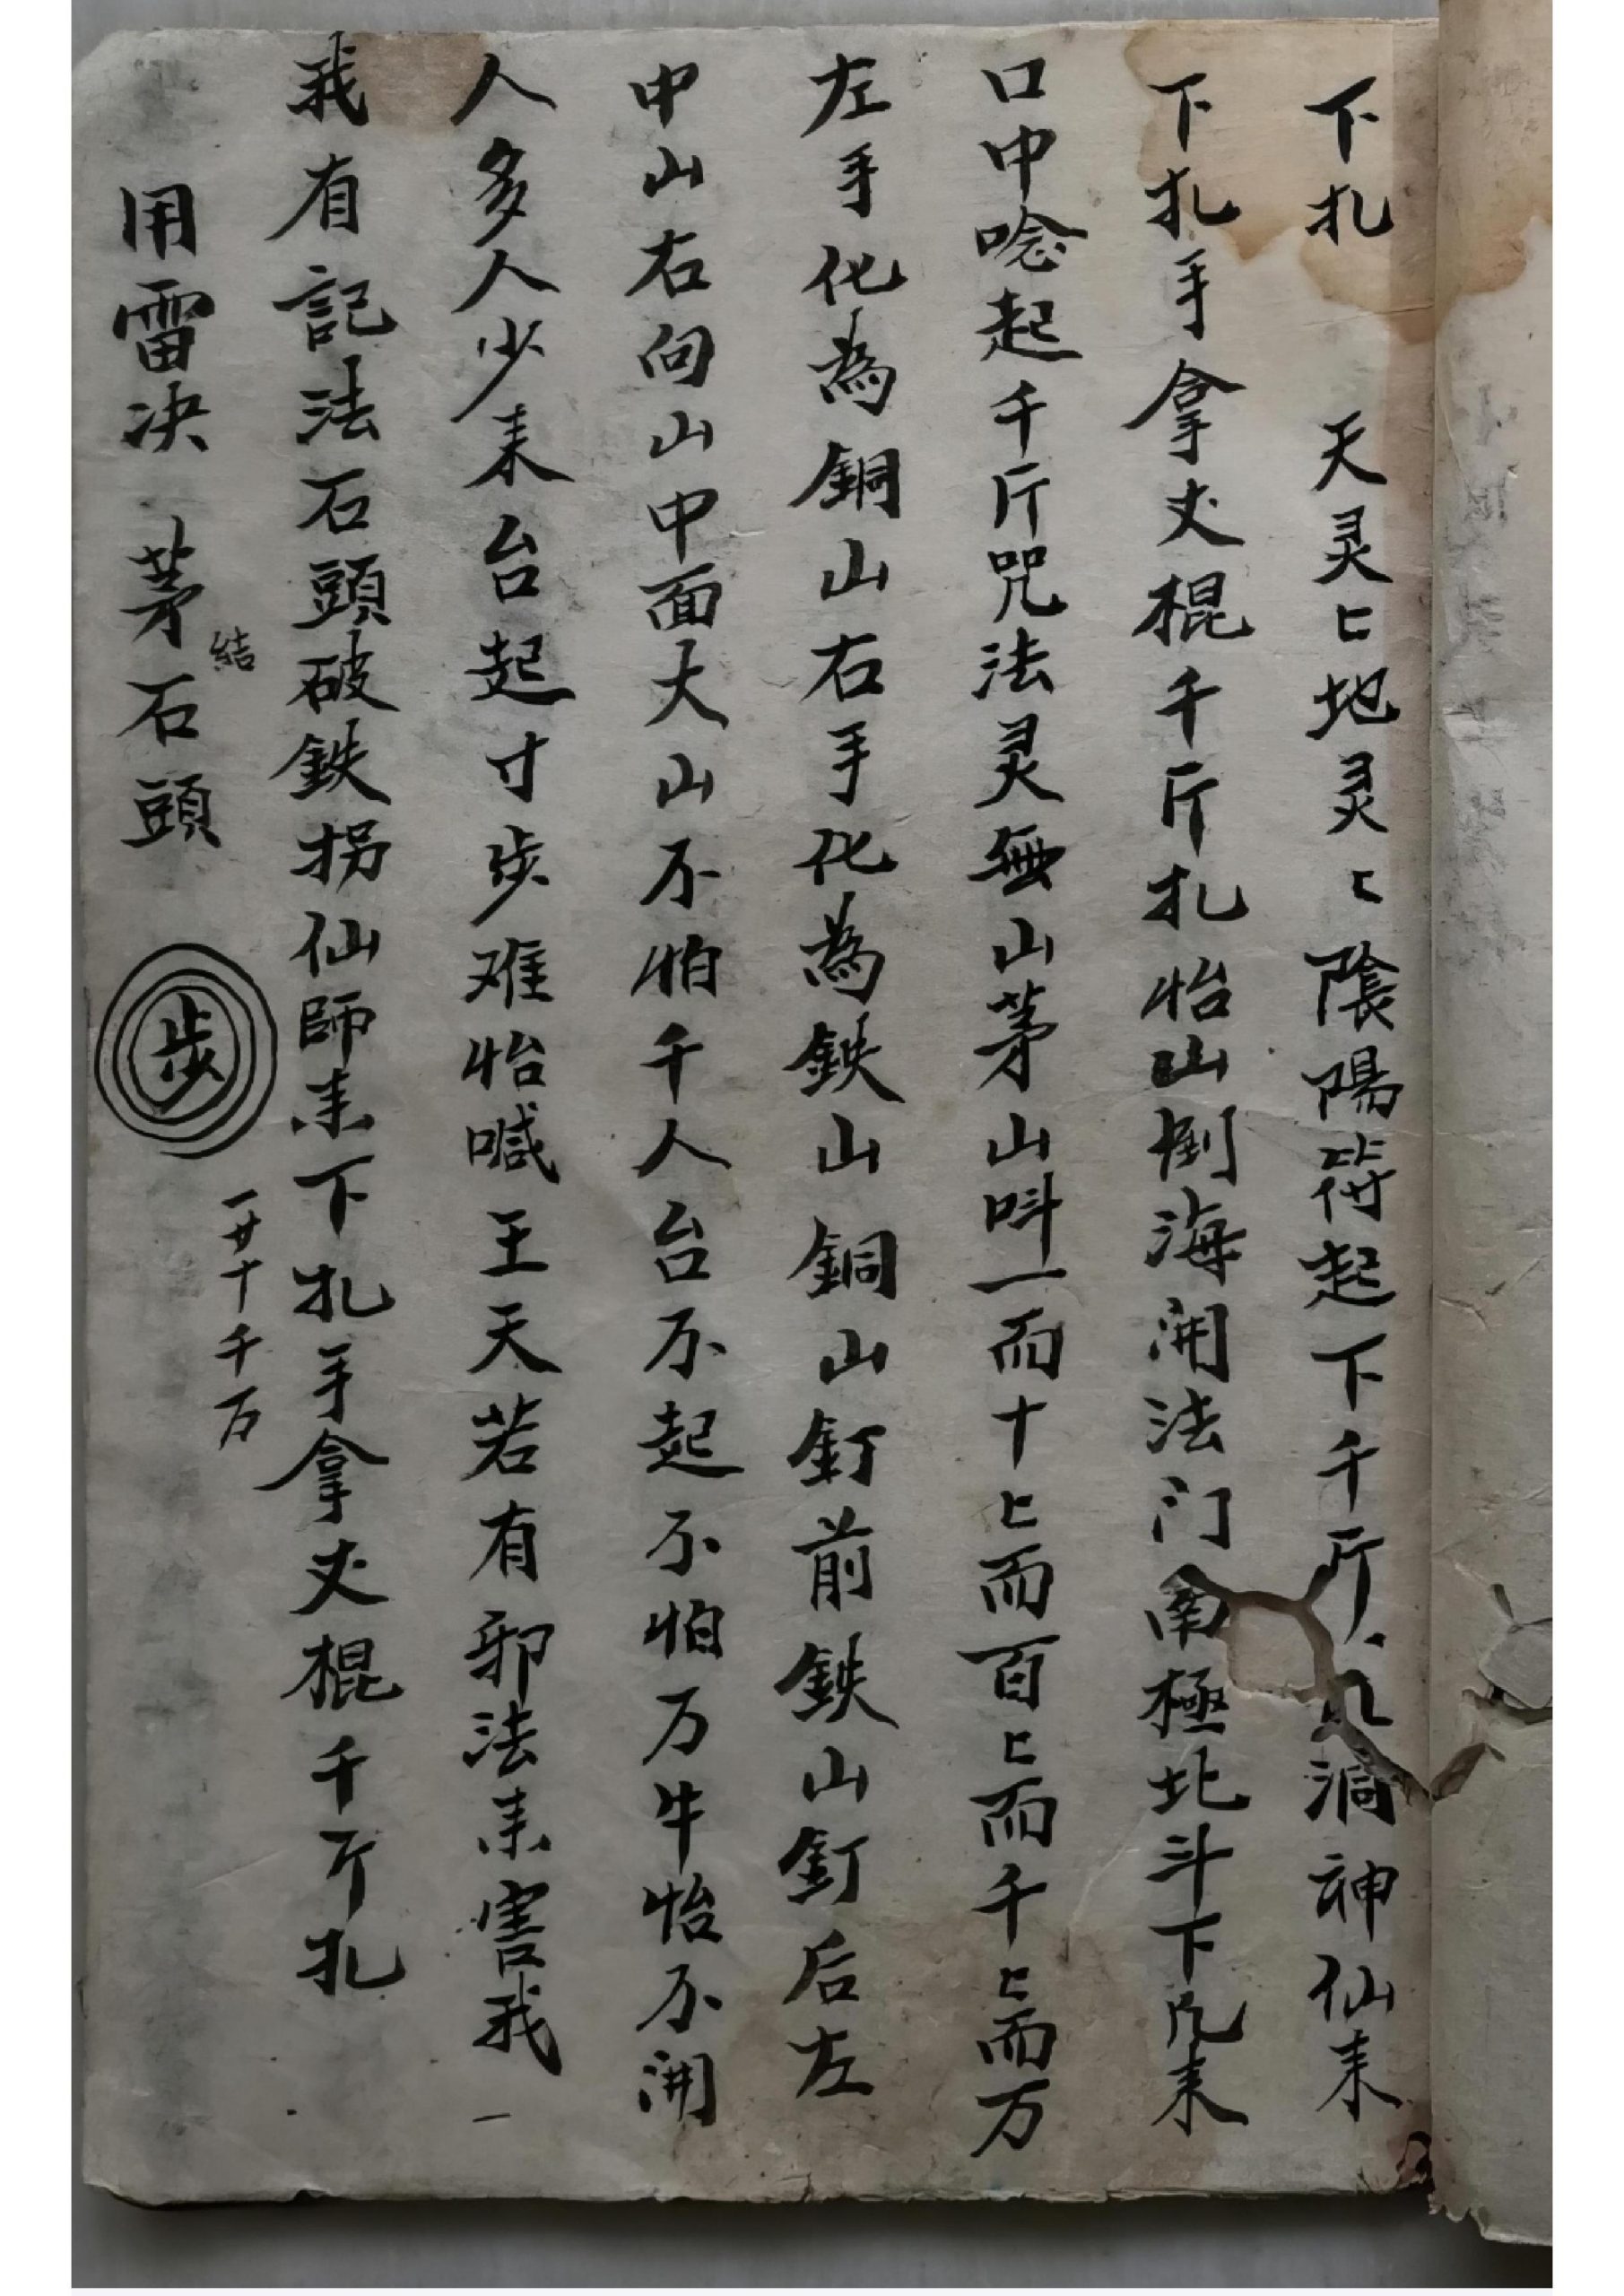 下扎 天灵〻地灵〻陰陽符起下千斤 洞神仙来
下扎手拿丈棍千斤扎怡山倒海開法门南極北斗下凡来
口中唸起千斤咒法灵無山茅山呌一而十〻而百〻而千〻而万
左手化為銅山右手化為鉄山銅山釘前鉄山釘后左
中山右向山中面大山不怕千人台不起不怕万牛怡不開
人多人少来台起寸步难怡喊王天若有邪法来害我
我有記法石頭破鉄拐仙師来下扎手拿丈棍千斤扎
用雷决 茅石頭 步
結
一廿十千万